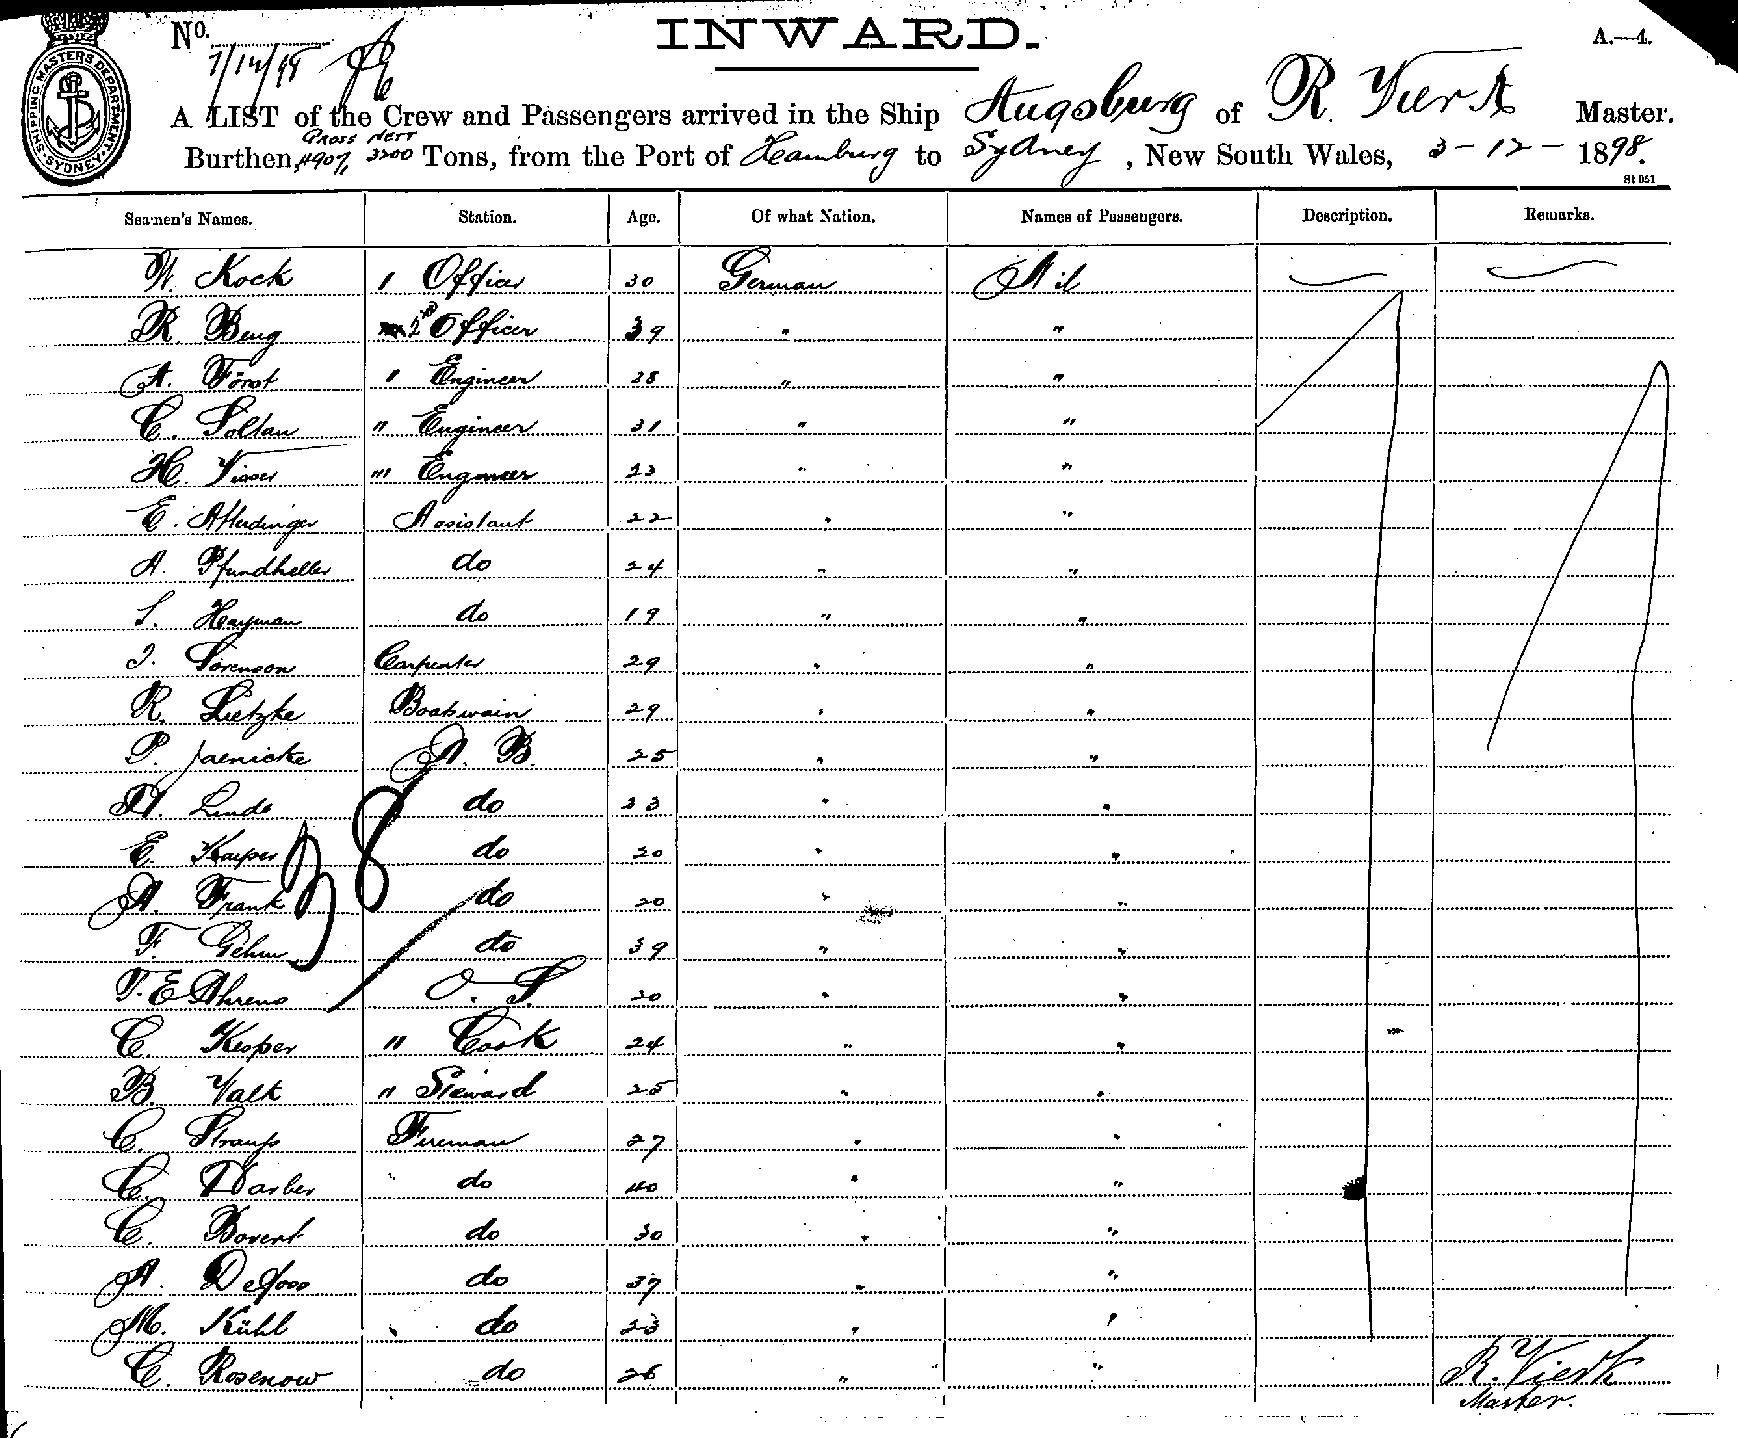 SHIPPING MASTERS DEPARTMENT SYDNEY
No. INWARD. A.—4.
7/12/98
A LIST of the Crew and Passengers arrived in the Ship Augsburg of R. Vierk Master.
Gross Nett
Burthen, 4907 3200 Tons, from the Port of Hamburg to Sydney, New South Wales, 3-12-1898.
St 051
Seamen's Names. Station. Age. Of what Nation. Names of Passengers. Description. Remarks.
W. Kock 1 Officer 30 German Nil
R Beug 2nd Officer 39 " "
A. Först ' Engineer 38 " "
C. Soltau " Engineer 31 " "
H. Visser "' Engineer 23 " "
E. Assistant 22 " "
A. Pfundheller do 24 " "
L. Hayman do 19 " "
J. Sörenson Carpenter 29 " "
R. Lietzke Boatswain 29 " "
P. Jaenicke A. B. 25 " "
H. Linde do 23 " "
E. Kasper do 20 " "
A. Frank do 20 " "
F. Gehm do 39 " "
38
T. E Ahrens O. S. 20 " "
C. Kesper " Cook 24 " "
B. Valk " Steward 25 " "
C. Strauss Fireman 27 " "
C. Darber do 40 " "
C. Bovert do 30 " "
A. do 37 " "
M. Kühl do 23 " "
C. Rosenow do 26 " "
R. Vierk
Master.